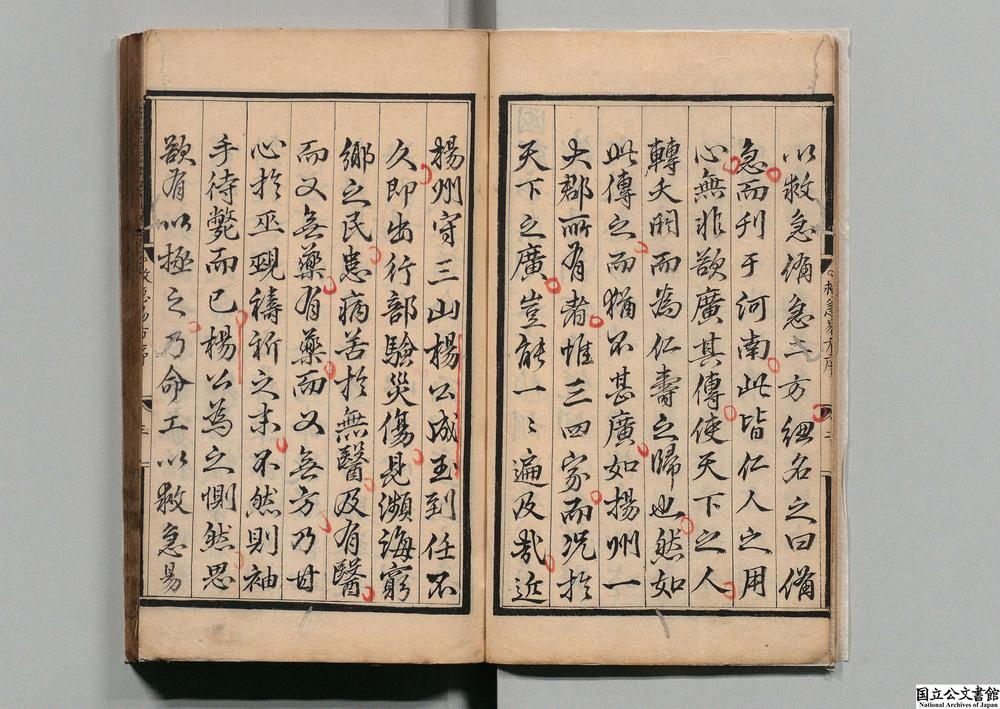 以救急備急二方總名之曰備
急而刊于河南此皆仁人之用
心無非欲廣其傳使天下之人
轉夭閼而為仁壽之歸也然如
此傳之而猶不甚廣如揚州一
大郡所有者惟三四家而況於
天下之廣豈能一〻遍及哉近
楊州守三山楊公成玉到任不
久即出行部驗災傷見瀕海窮
鄉之民患病苦於無醫及有醫
而又無藥有藥而又無方乃甘
心於巫覡禱祈之末不然則袖
手待斃而已楊公為之惻然思
欲有以拯之乃命工以救急易
国立公文書館
National Archives of Japan